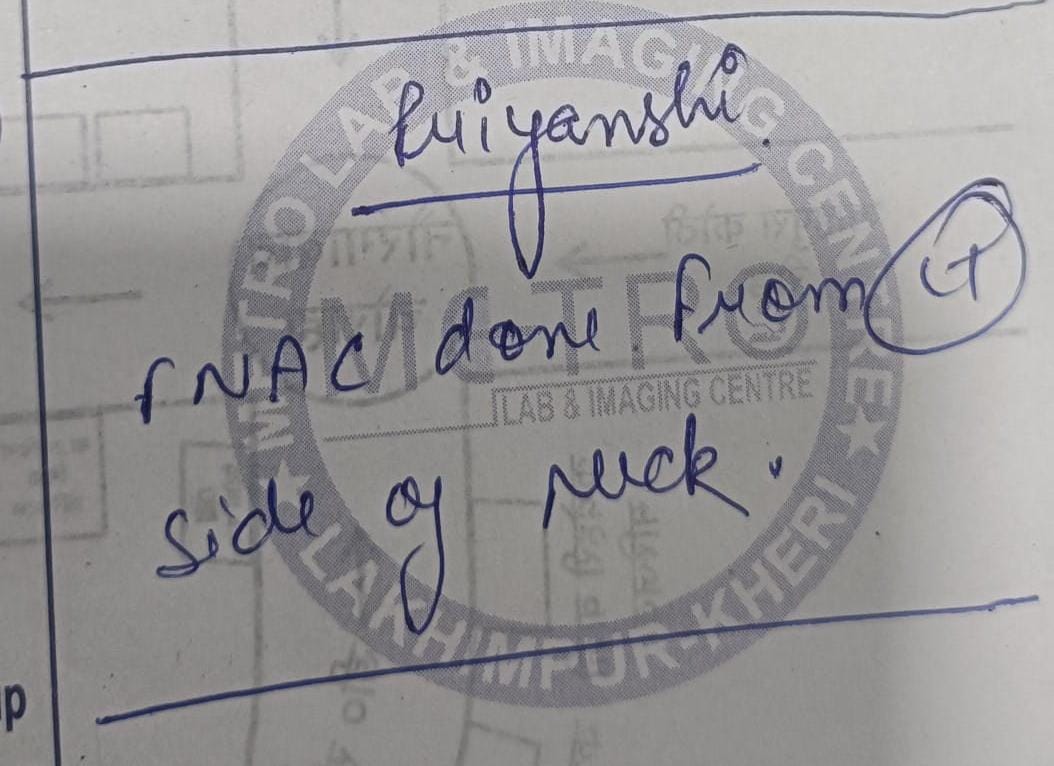 Priyanshi.
FNAC done from Lt
side of neck.
METRO LAB & IMAGING CENTRE
METRO
LAB & IMAGING CENTRE
★ LAKHIMPUR-KHERI ★